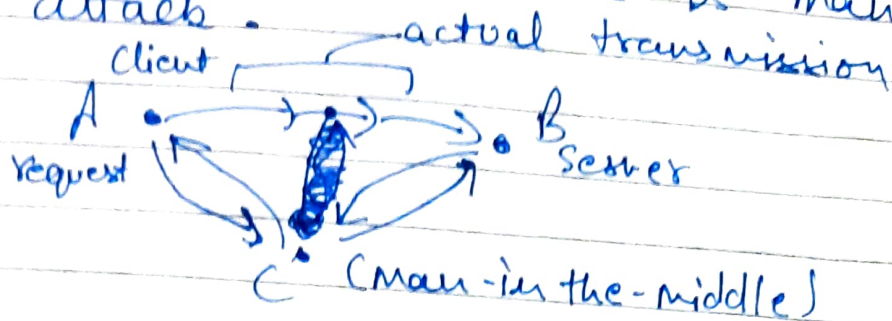 attack.
actual transmission
Client
A B
request Server
C (Man-in-the-middle)